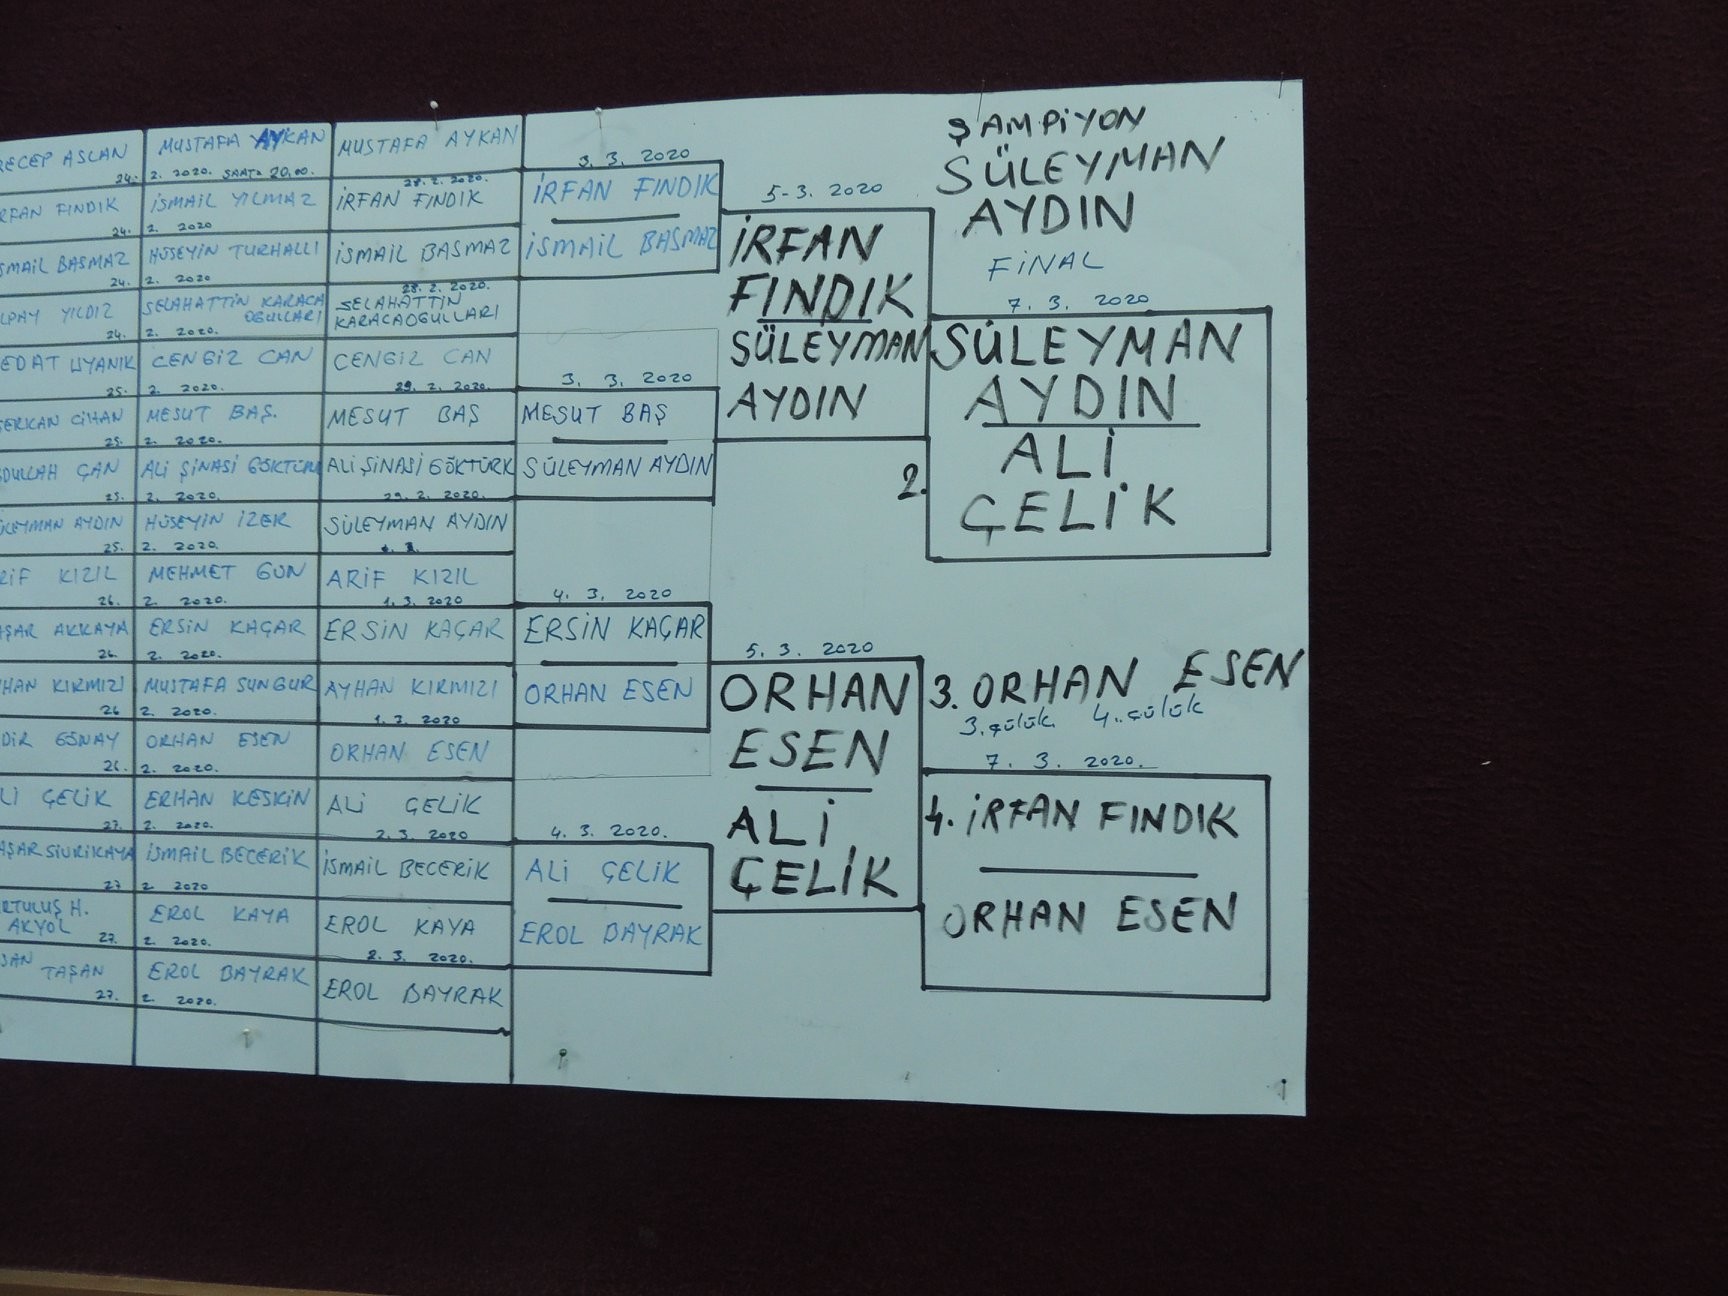 RECEP ASLAN
24.
RFAN FINDIK
24.
SMAİL BASMAZ
24.
LPAY YILDIZ
24.
EDAT UYANIK
25.
SERKAN CİHAN
25.
DULLAH ÇAN
25.
ÜLEYMAN AYDIN
25.
RİF KIZIL
26.
AŞAR AKKAYA
26.
HAN KIRMIZI
26
DİR GÜNAY
26.
Lİ ÇELİK
27.
AŞAR SİVRİKAYA
27
RTULUŞ H.
AKYOL
27.
SAN TAŞAN
27.
MUSTAFA AYKAN
2. 2020. SAAT: 20,00.
İSMAİL YILMAZ
2. 2020
HÜSEYİN TURHALLI
2. 2020
SELAHATTİN KARACA
OGULLARI
2. 2020.
CENGİZ CAN
2. 2020.
MESUT BAŞ.
2. 2020.
ALİ ŞİNASİ GÖKTÜRK
2. 2020.
HÜSEYİN İZER
2. 2020.
MEHMET GÜN
2. 2020.
ERSİN KAÇAR
2. 2020.
MUSTAFA SUNGUR
2. 2020.
ORHAN ESEN
2. 2020.
ERHAN KESKİN
2. 2020.
İSMAİL BECERİK
2. 2020
EROL KAYA
2. 2020.
EROL BAYRAK
2. 2020.
MUSTAFA AYKAN
28. 2. 2020.
İRFAN FINDIK
İSMAİL BASMAZ
28. 2. 2020.
SELAHATTİN
KARACAOGULLARI
CENGİZ CAN
29. 2. 2020.
MESUT BAŞ
ALİ ŞİNASİ GÖKTÜRK
29. 2. 2020.
SÜLEYMAN AYDIN
ARİF KIZIL
1. 3. 2020
ERSİN KAÇAR
AYHAN KIRMIZI
1. 3. 2020
ORHAN ESEN
ALİ ÇELİK
2. 3. 2020
İSMAİL BECERİK
EROL KAYA
2. 3. 2020.
EROL BAYRAK
3. 3. 2020
İRFAN FINDIK
İSMAİL BASMAZ
3. 3. 2020
MESUT BAŞ
SÜLEYMAN AYDIN
4. 3. 2020
ERSİN KAÇAR
ORHAN ESEN
4. 3. 2020.
ALİ ÇELİK
EROL BAYRAK
5-3. 2020
İRFAN
FINDIK
SÜLEYMAN
AYDIN
5. 3. 2020
ORHAN
ESEN
ALİ
ÇELİK
ŞAMPİYON
SÜLEYMAN
AYDIN
FİNAL
7. 3. 2020
SÜLEYMAN
AYDIN
2. ALİ
ÇELİK
3. ORHAN ESEN
3. çülük 4. çülük
7. 3. 2020.
4. İRFAN FINDIK
ORHAN ESEN